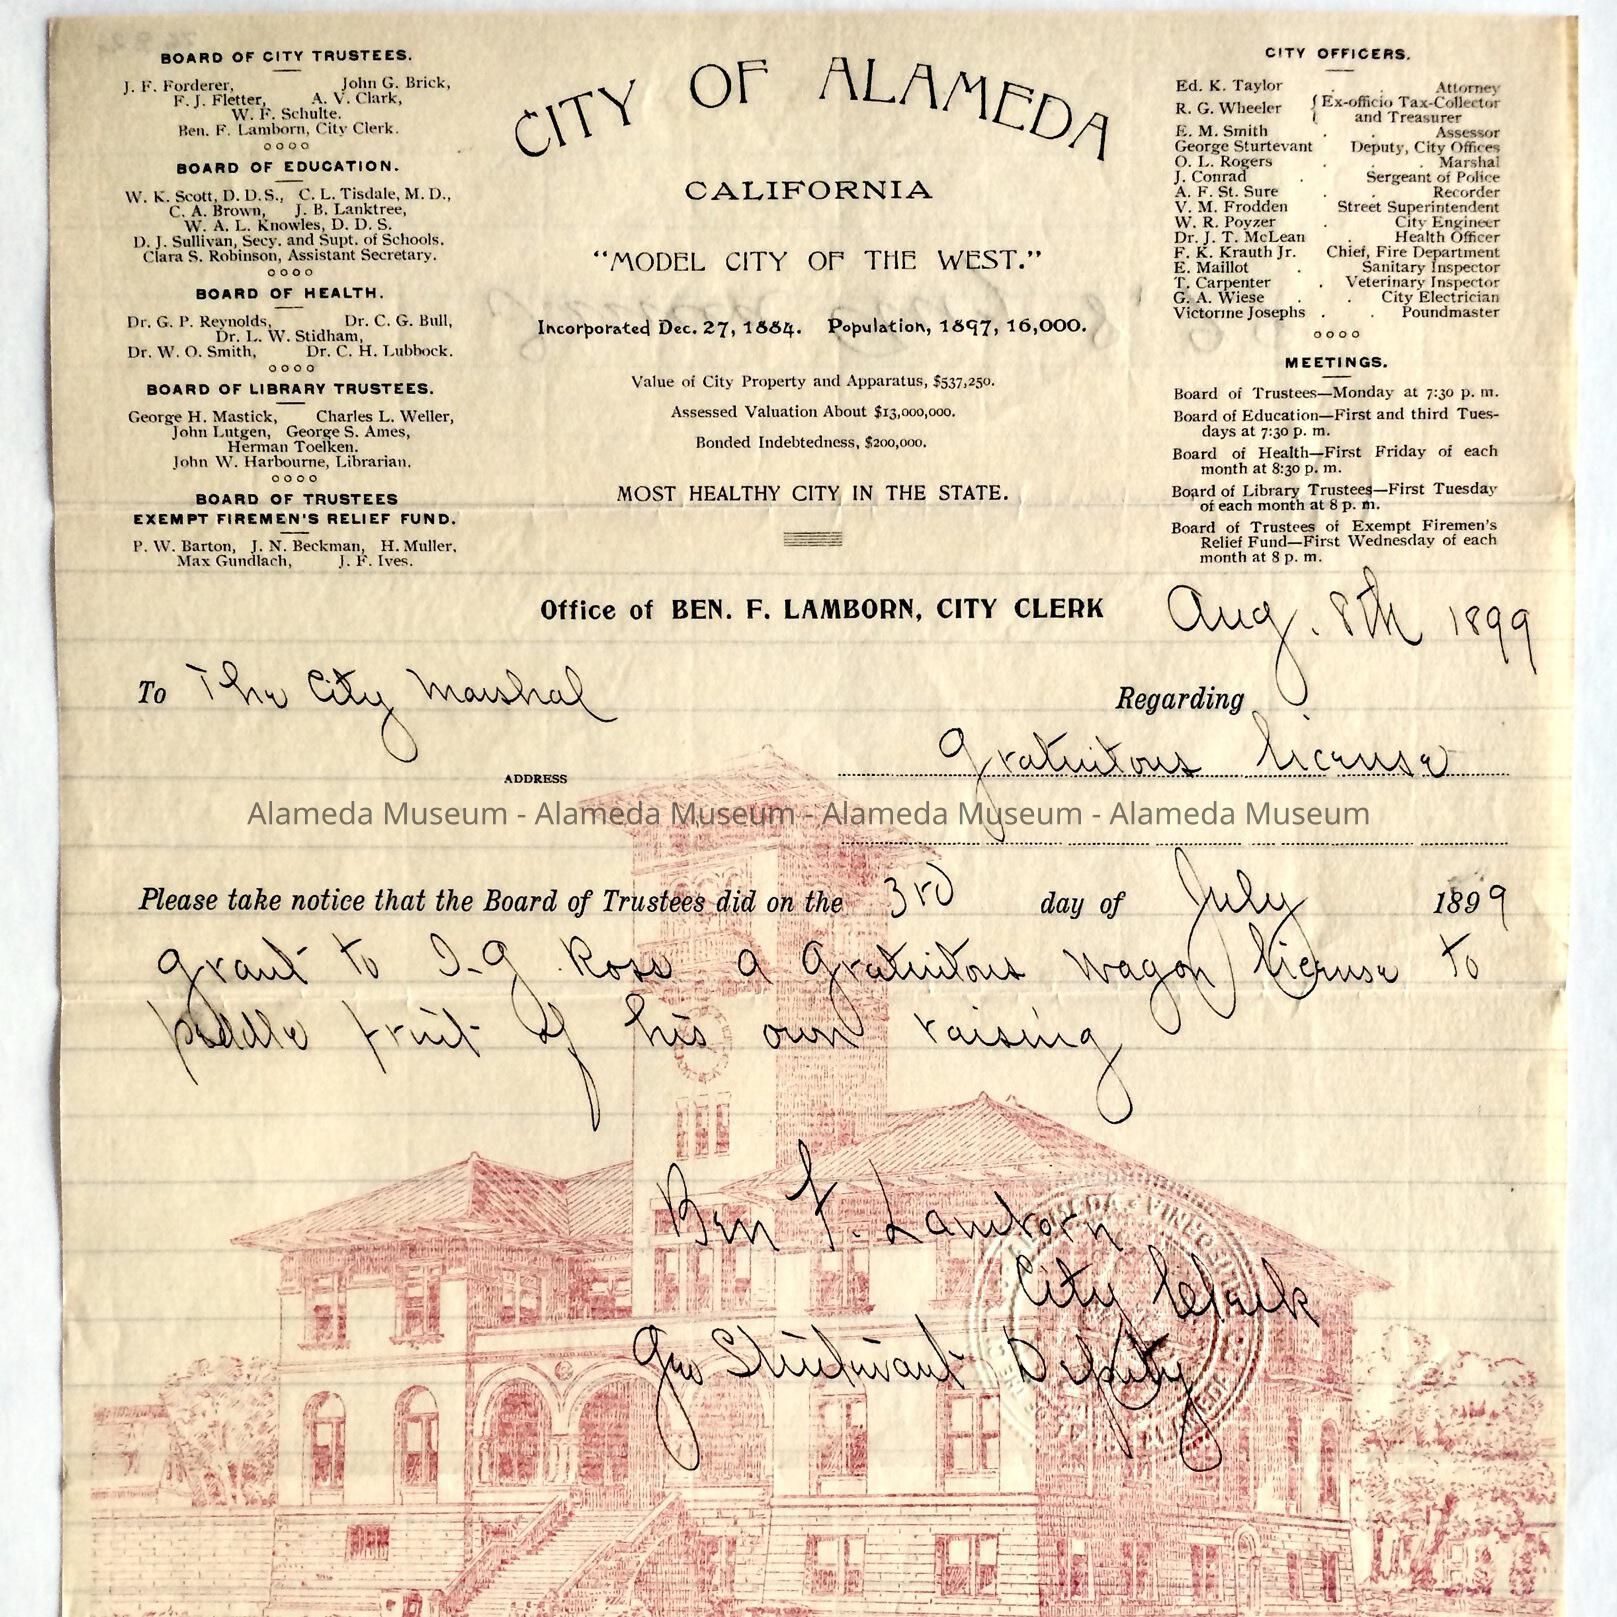 BOARD OF CITY TRUSTEES.
J. F. Forderer, John G. Brick,
F. J. Fletter, A. V. Clark,
W. F. Schulte.
Ben. F. Lamborn, City Clerk.
BOARD OF EDUCATION.
W. K. Scott, D. D. S., C. L. Tisdale, M. D.,
C. A. Brown, J. B. Lanktree,
W. A. L. Knowles, D. D. S.
D. J. Sullivan, Secy. and Supt. of Schools.
Clara S. Robinson, Assistant Secretary.
BOARD OF HEALTH.
Dr. G. P. Reynolds, Dr. C. G. Bull,
Dr. L. W. Stidham,
Dr. W. O. Smith, Dr. C. H. Lubbock.
BOARD OF LIBRARY TRUSTEES.
George H. Mastick, Charles L. Weller,
John Lutgen, George S. Ames,
Herman Toelken.
John W. Harbourne, Librarian.
BOARD OF TRUSTEES
EXEMPT FIREMEN'S RELIEF FUND.
P. W. Barton, J. N. Beckman, H. Muller,
Max Gundlach, J. F. Ives.
CITY OF ALAMEDA
CALIFORNIA
"MODEL CITY OF THE WEST."
Incorporated Dec. 27, 1884. Population, 1897, 16,000.
Value of City Property and Apparatus, $537,250.
Assessed Valuation About $13,000,000.
Bonded Indebtedness, $200,000.
MOST HEALTHY CITY IN THE STATE.
CITY OFFICERS.
Ed. K. Taylor . . Attorney
R. G. Wheeler { Ex-officio Tax-Collector
and Treasurer
E. M. Smith . . Assessor
George Sturtevant Deputy, City Offices
O. L. Rogers . . . Marshal
J. Conrad . Sergeant of Police
A. F. St. Sure . . Recorder
V. M. Frodden Street Superintendent
W. R. Poyzer . City Engineer
Dr. J. T. McLean . Health Officer
F. K. Krauth Jr. Chief, Fire Department
E. Maillot . Sanitary Inspector
T. Carpenter . Veterinary Inspector
G. A. Wiese . . City Electrician
Victorine Josephs . . Poundmaster
MEETINGS.
Board of Trustees—Monday at 7:30 p. m.
Board of Education—First and third Tues-
days at 7:30 p. m.
Board of Health—First Friday of each
month at 8:30 p. m.
Board of Library Trustees—First Tuesday
of each month at 8 p. m.
Board of Trustees of Exempt Firemen's
Relief Fund—First Wednesday of each
month at 8 p. m.
Office of BEN. F. LAMBORN, CITY CLERK Aug. 8th 1899
To The City Marshal
Regarding
Gratuitous license
ADDRESS
Alameda Museum - Alameda Museum - Alameda Museum - Alameda Museum
Please take notice that the Board of Trustees did on the 3rd day of July 1899
grant to I. G. Ross a Gratuitous wagon license to
peddle fruit of his own raising
Ben F. Lamborn
City Clerk
Geo Sturtevant Deputy